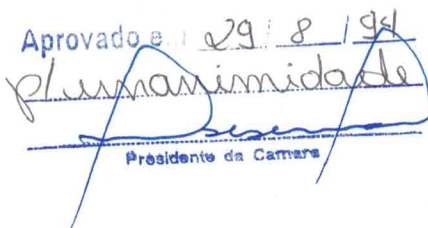 Aprovado e 29 / 8 / 94
p/ unanimidade
Presidente da Camara